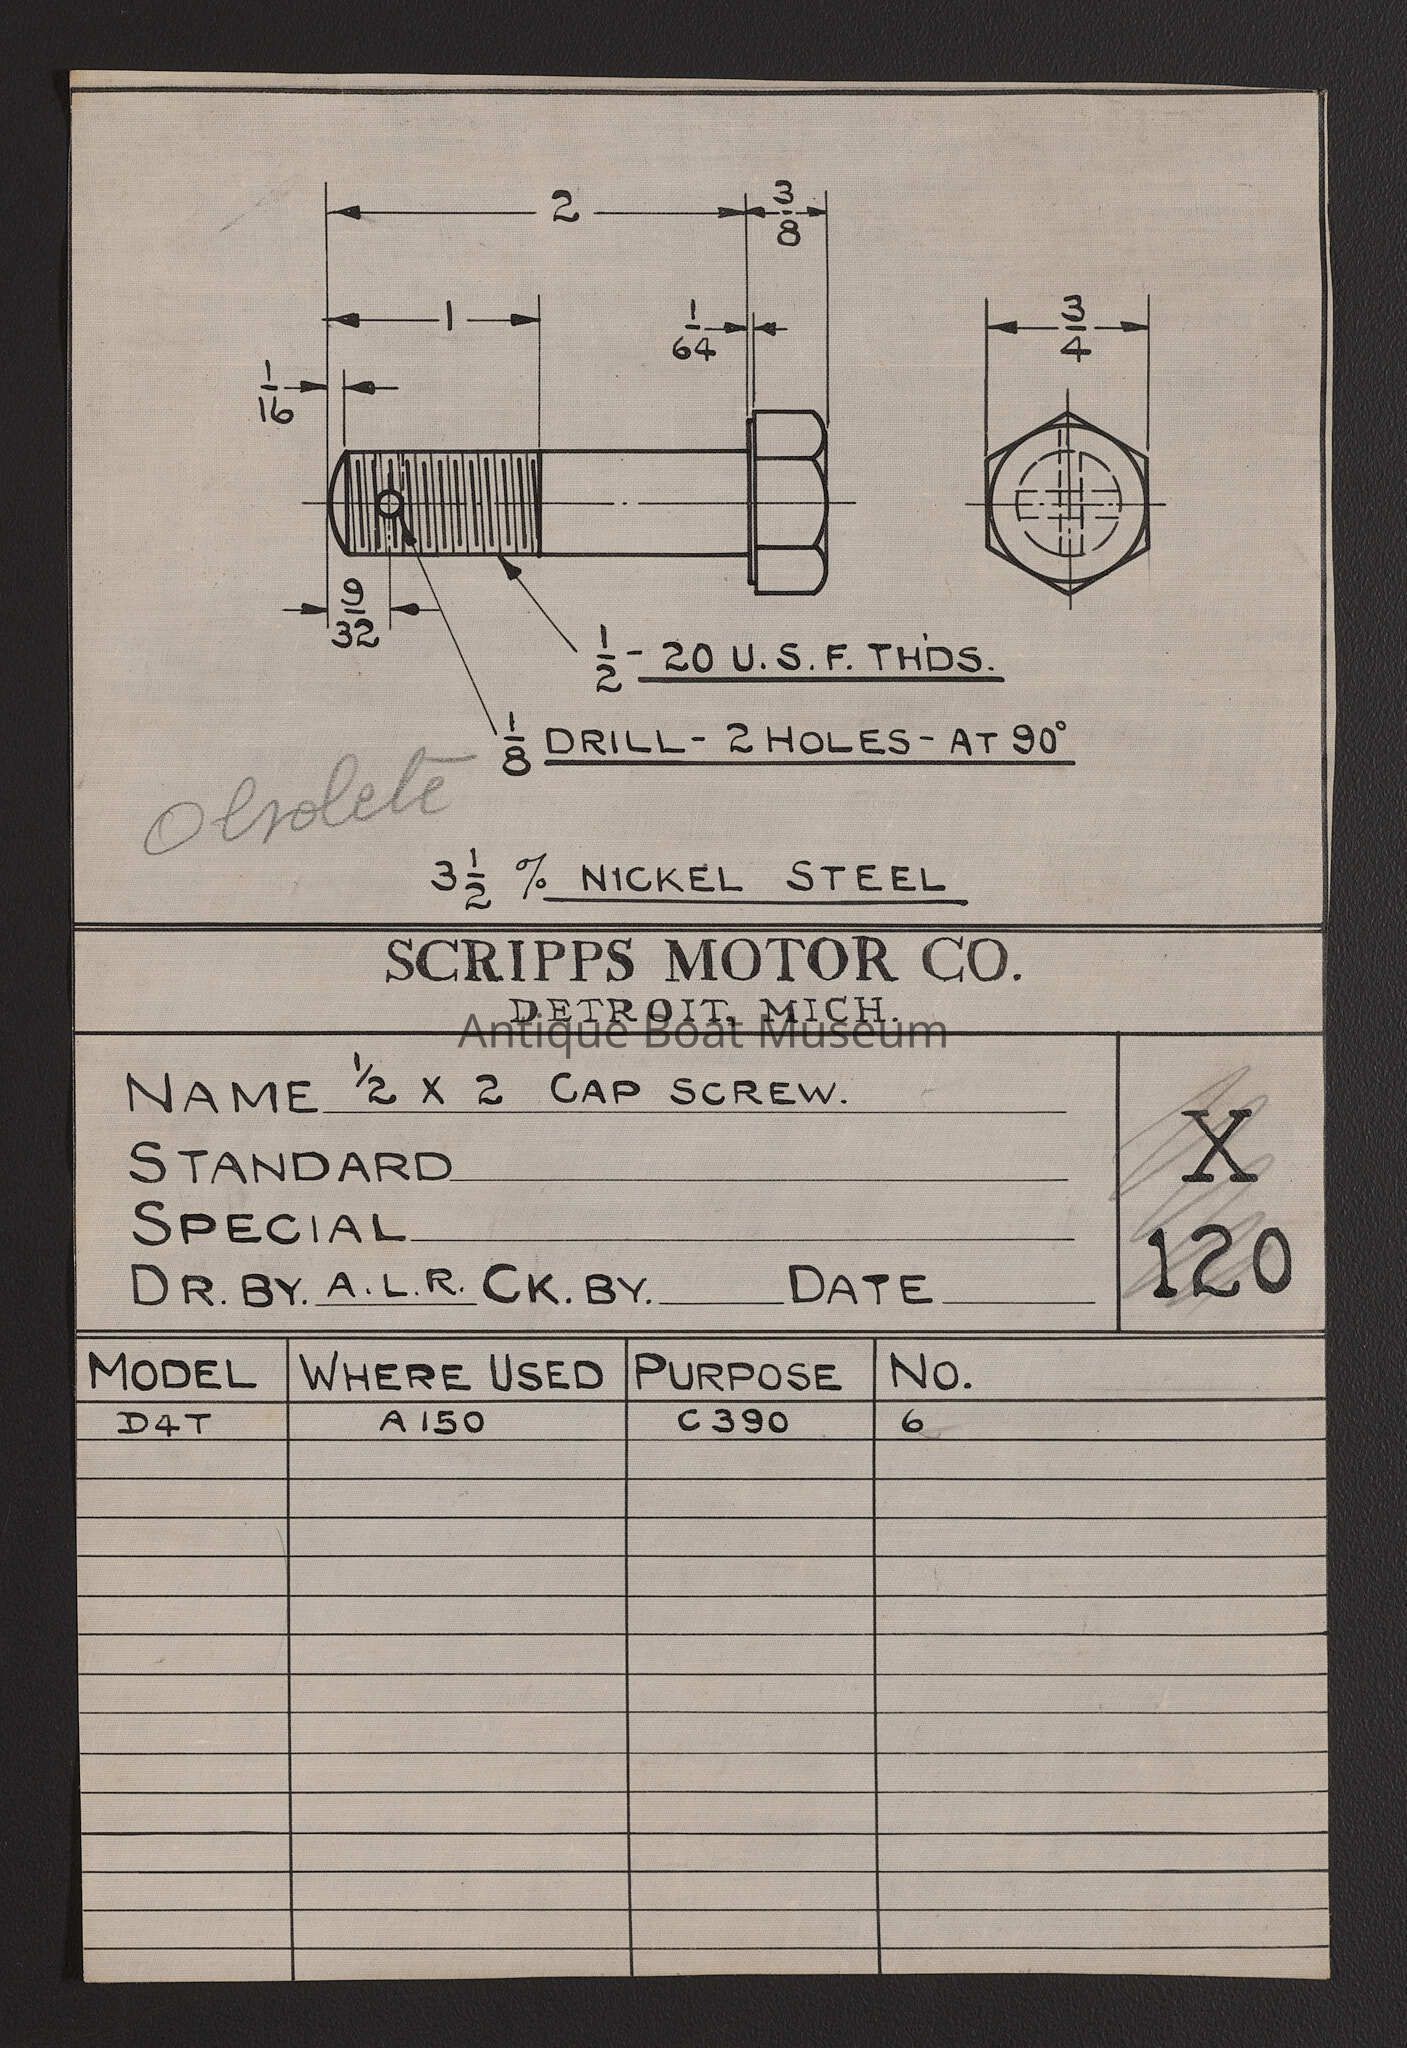 2
3/8
1
1/64
3/4
1/16
9/32
1/2 - 20 U.S.F. TH'DS.
1/8 DRILL - 2 HOLES - AT 90°
Obsolete
3 1/2 % NICKEL STEEL
SCRIPPS MOTOR CO.
DETROIT, MICH.
Antique Boat Museum
NAME 1/2 X 2 CAP SCREW.
STANDARD
SPECIAL
DR. BY. A.L.R. CK. BY. DATE
X
120
MODEL WHERE USED PURPOSE NO.
D4T A150 C390 6